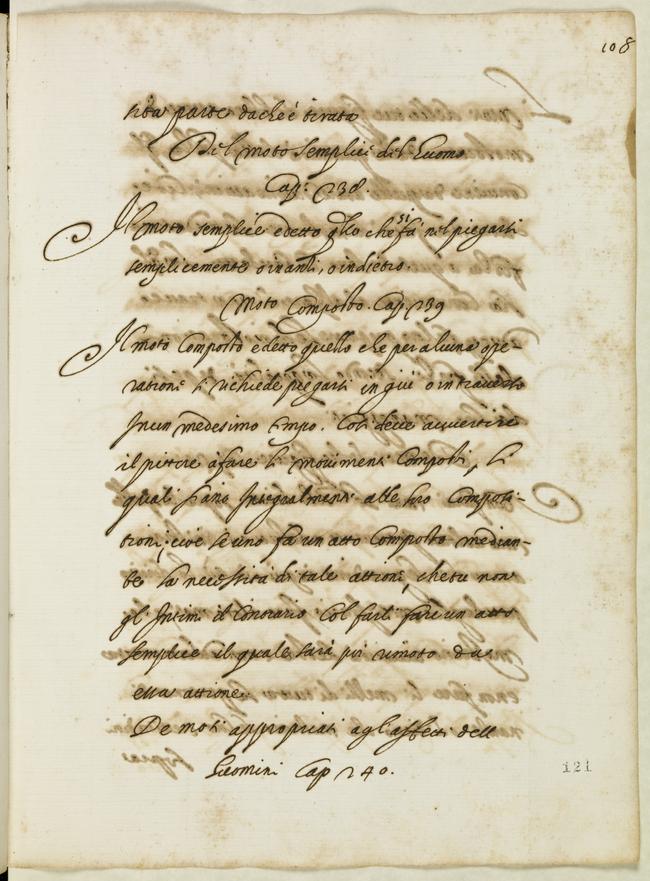 108
sita parte da che è tirata
Del moto semplice del huomo
Cap: 238.
Il moto semplice e detto qllo che si fà nel piegarsi
semplicemente o inanti, o indietro.
Moto Composto. Cap. 239
Il moto Composto è detto quello che per alcuna ope-
ratione si richiede piegarsi in giu o in traverso
In un medesimo tempo. Così deve avvertire
il pittore à fare li movimenti Composti, li
quali siano Integralmente alle loro Composi-
tioni, cioè se uno fa un atto Composto median-
te la necessità di tale attione, che tu non
gl Intimi il Contrario Col farli fare un atto
semplice il quale sarà più rimoto da
essa attione.
De moti appropriati agl affetti dell
huomini Cap 240.
121